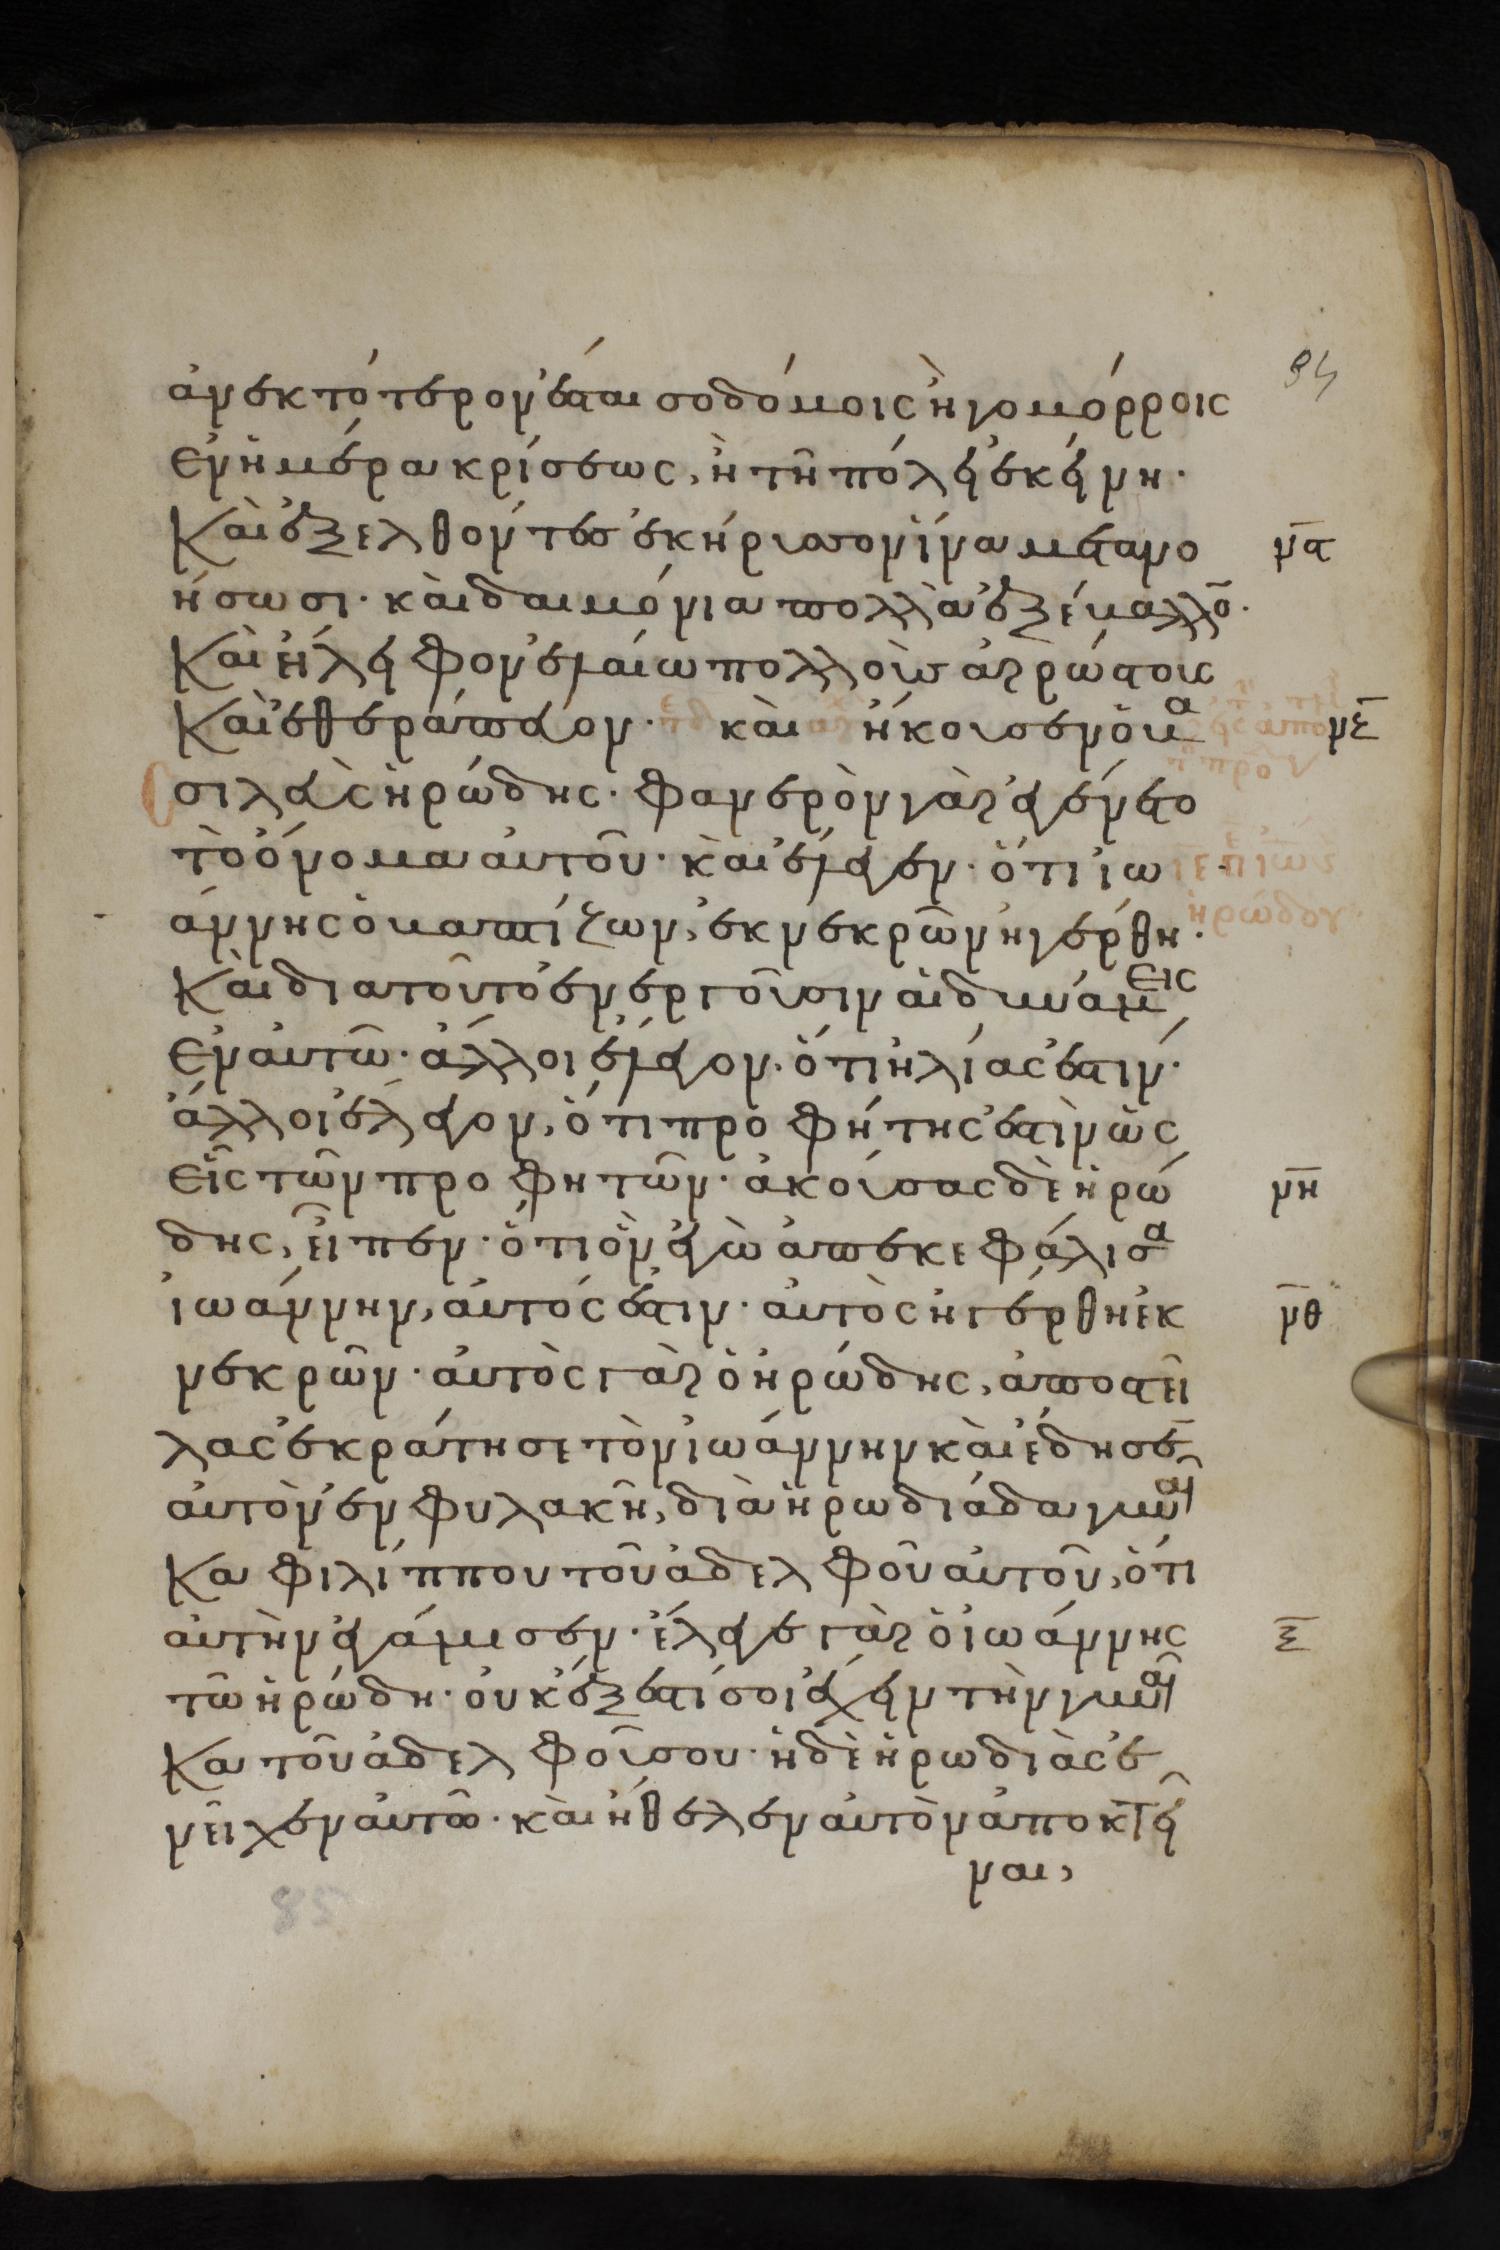 94
ἀνεκτότερον ἔσται σοδόμοις ἢ γομόρροις
ἐν ἡμέρα κρίσεως, ἢ τῆ πόλει ἐκείνη·
Καὶ ἐξελθόντες ἐκήρυσσον ἵνα μετανο νϛ
ήσωσι· καὶ δαιμόνια πολλὰ ἐξέβαλλο̅·
Καὶ ἤλειφον ἐλαίω πολλοὺς ἀρρώστους
Καὶ ἐθεράπευον· καὶ ἤκουσεν ὁ βα νζ
σιλεὺς ἡρώδης· φανερὸν γὰρ ἐγένετο
τὸ ὄνομα αὐτοῦ· καὶ ἔλεγεν· ὅτι ἰω
άννης ὁ βαπτίζων, ἐκ νεκρῶν ἠγέρθη· ἡρώδου
Καὶ διατοῦτο ἐνεργοῦσιν αἱ δυνάμεις
ἐν αὐτῶ· ἄλλοι ἔλεγον· ὅτι ἠλίας ἐστιν·
ἄλλοι ἔλεγον, ὅτι προφήτης ἐστὶν ὡς
εἷς τῶν προφητῶν· ἀκούσας δὲ ἡρώ νη
δης, εἶπεν· ὅτι ὃν ἐγὼ ἀπεκεφάλισα
ἰωάννην, αὐτός ἐστιν· αὐτὸς ἠγέρθη ἐκ νθ
νεκρῶν· αὐτὸς γὰρ ὁ ἡρώδης, ἀποστεῖ
λας ἐκράτησε τὸν ἰωάννην καὶ ἔδησε̅
αὐτὸν ἐν φυλακῆ, διὰ ἡρωδιάδα γυναῖ
Κα φιλίππου τοῦ ἀδελφοῦ αὐτοῦ, ὅτι
αὐτὴν ἐγάμησεν· ἔλεγε γὰρ ὁ ἰωάννης ξ
τῶ ἡρώδη· οὐκ ἔξεστί σοι ἔχειν τὴν γυναῖ
Κα τοῦ ἀδελφοῦ σου· ἡ δὲ ἡρωδιὰς ἐ
νεῖχεν αὐτῶ· καὶ ἤθελεν αὐτὸν ἀποκτεῖ
ναι,
85